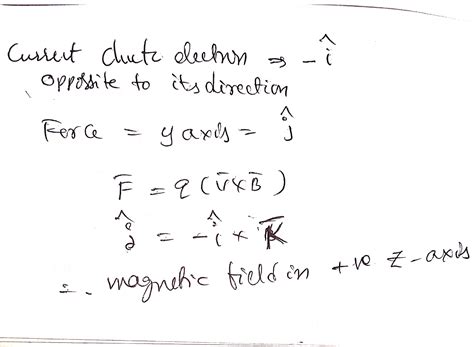 Current due to electron ⇒ -î
opposite to its direction
Force = y axis = ĵ
F̄ = q (v̄×B̄)
ĵ = -î × K̄
=. magnetic field in +ve Z-axis